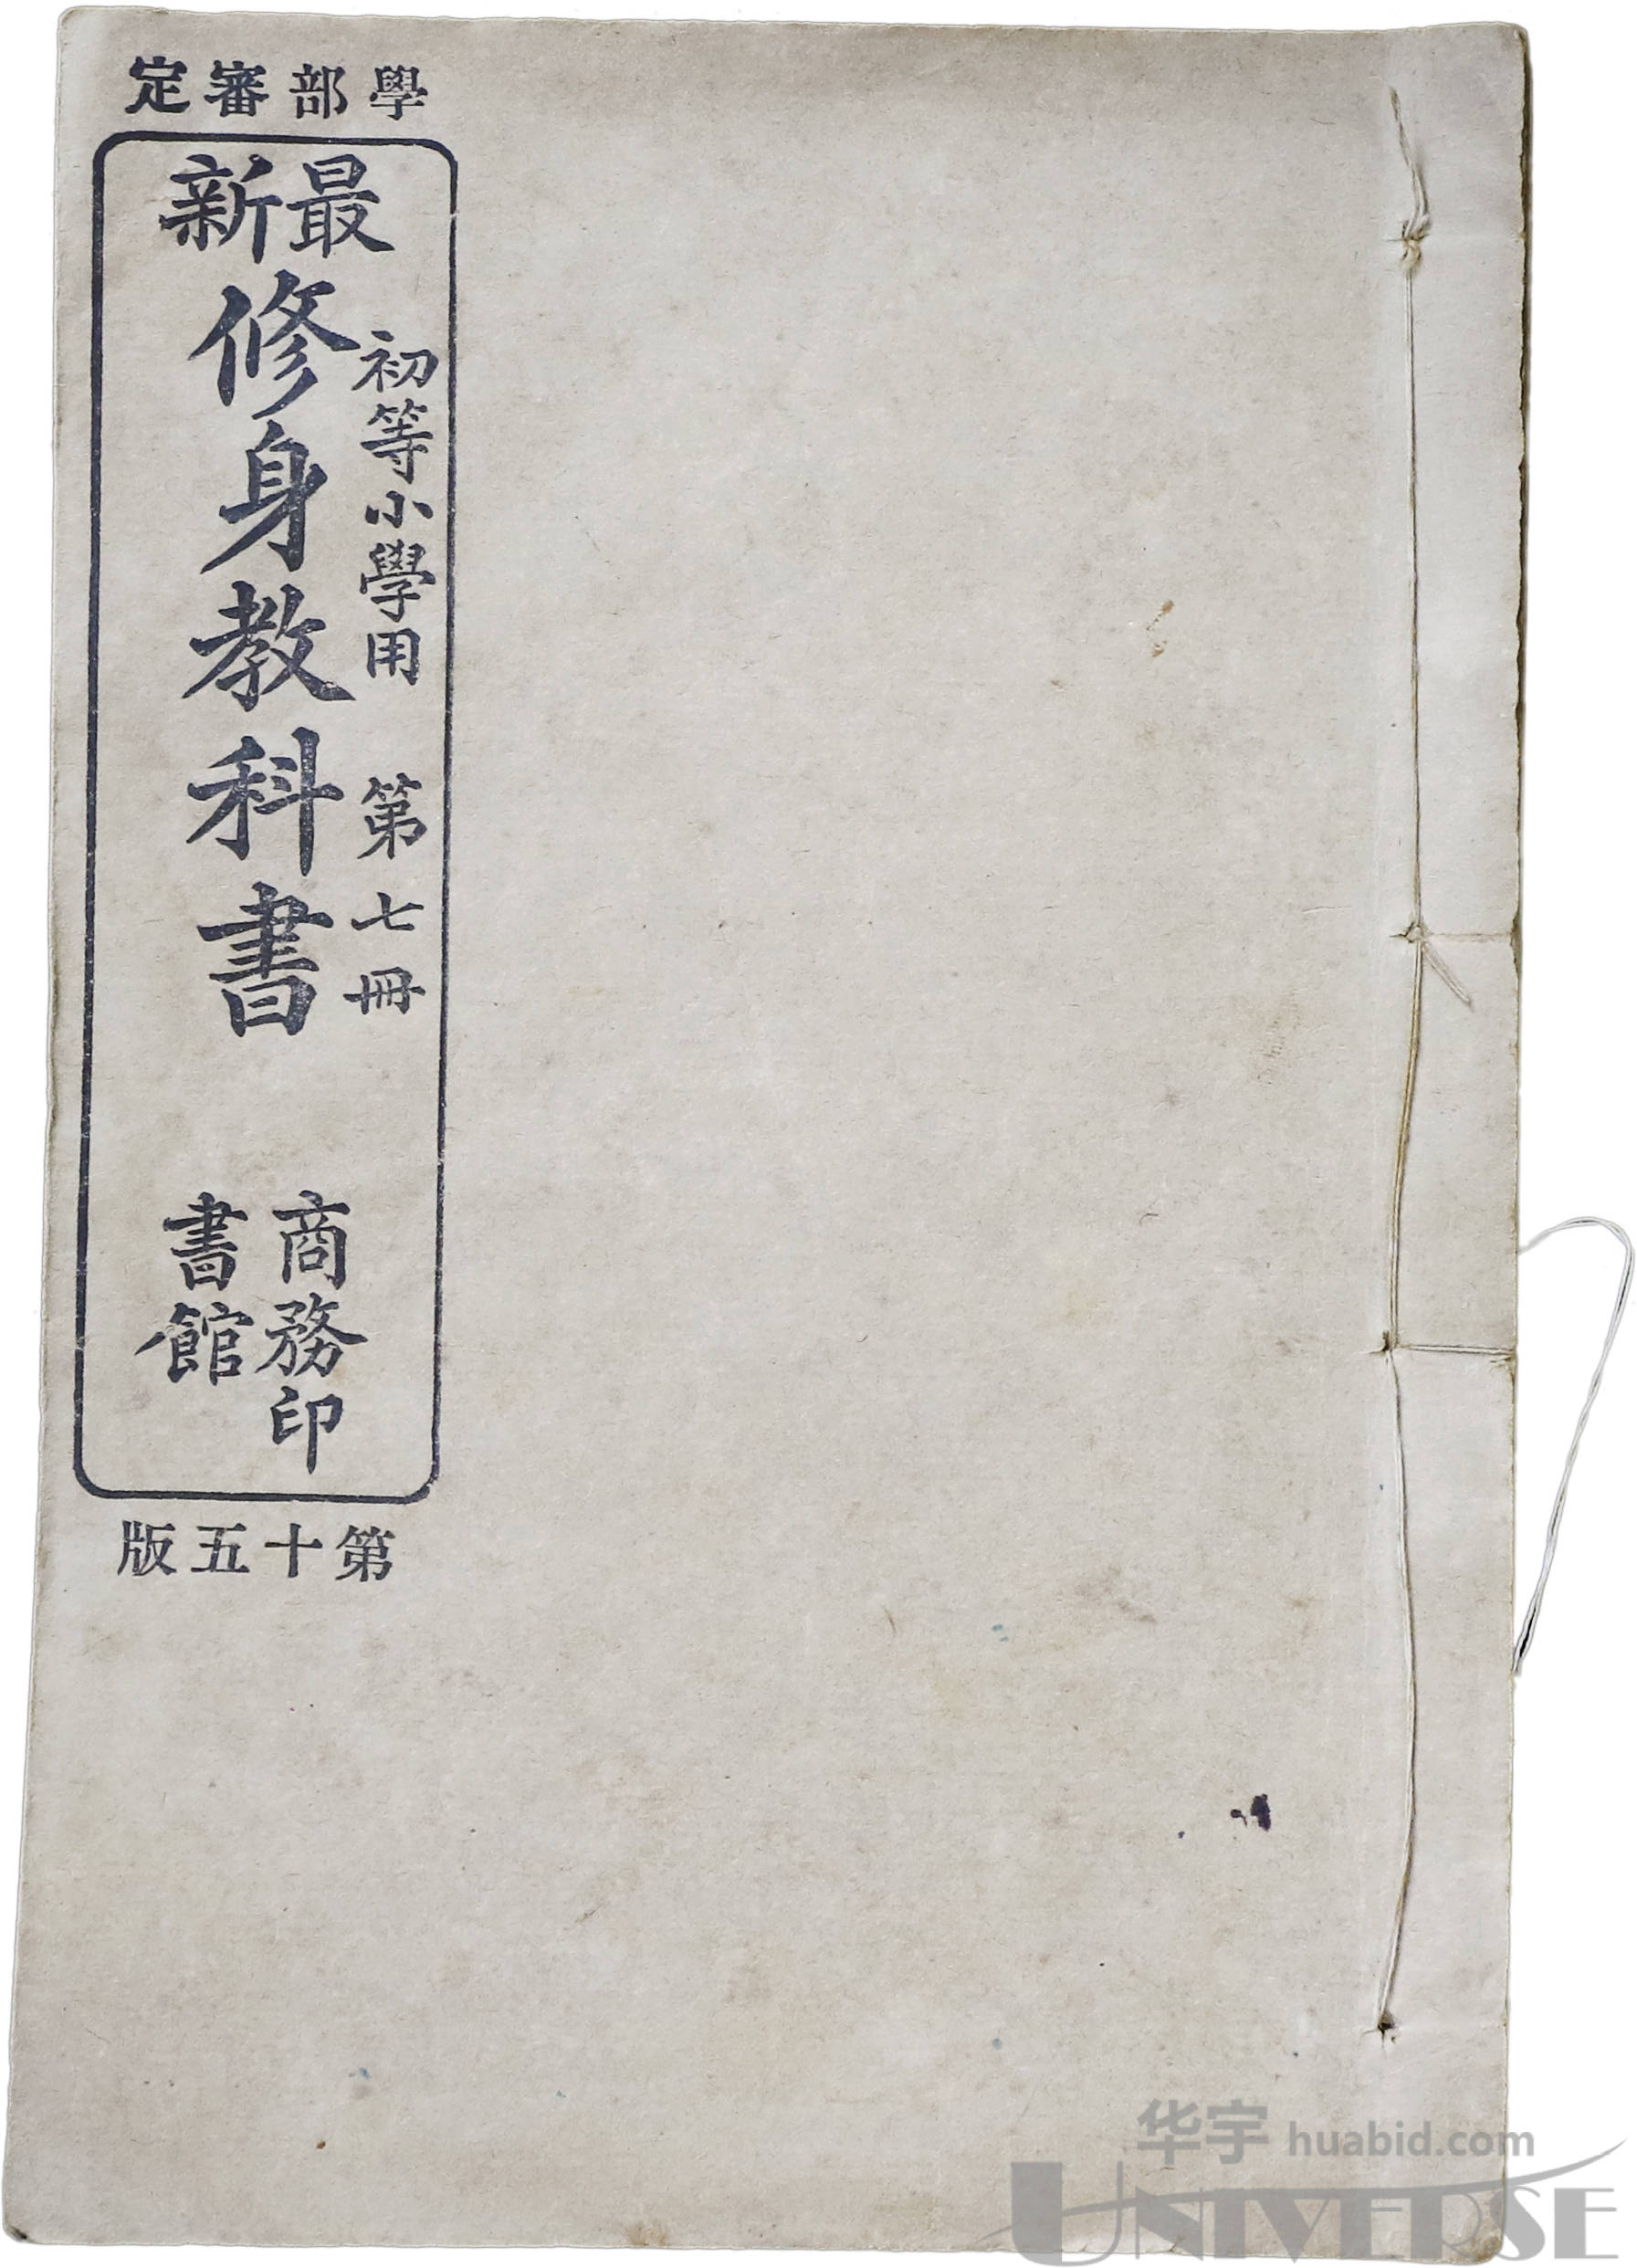 學部審定
最新
修身教科書
初等小學用 第七冊
商務印
書館
第十五版
华宇 huabid.com
UNIVERSE